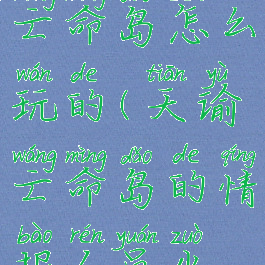 亡命岛怎么
wán de tiān yù
玩的(天谕
wáng mìng dǎo de qíng
亡命岛的情
bào rén yuán zuò
报人员坐